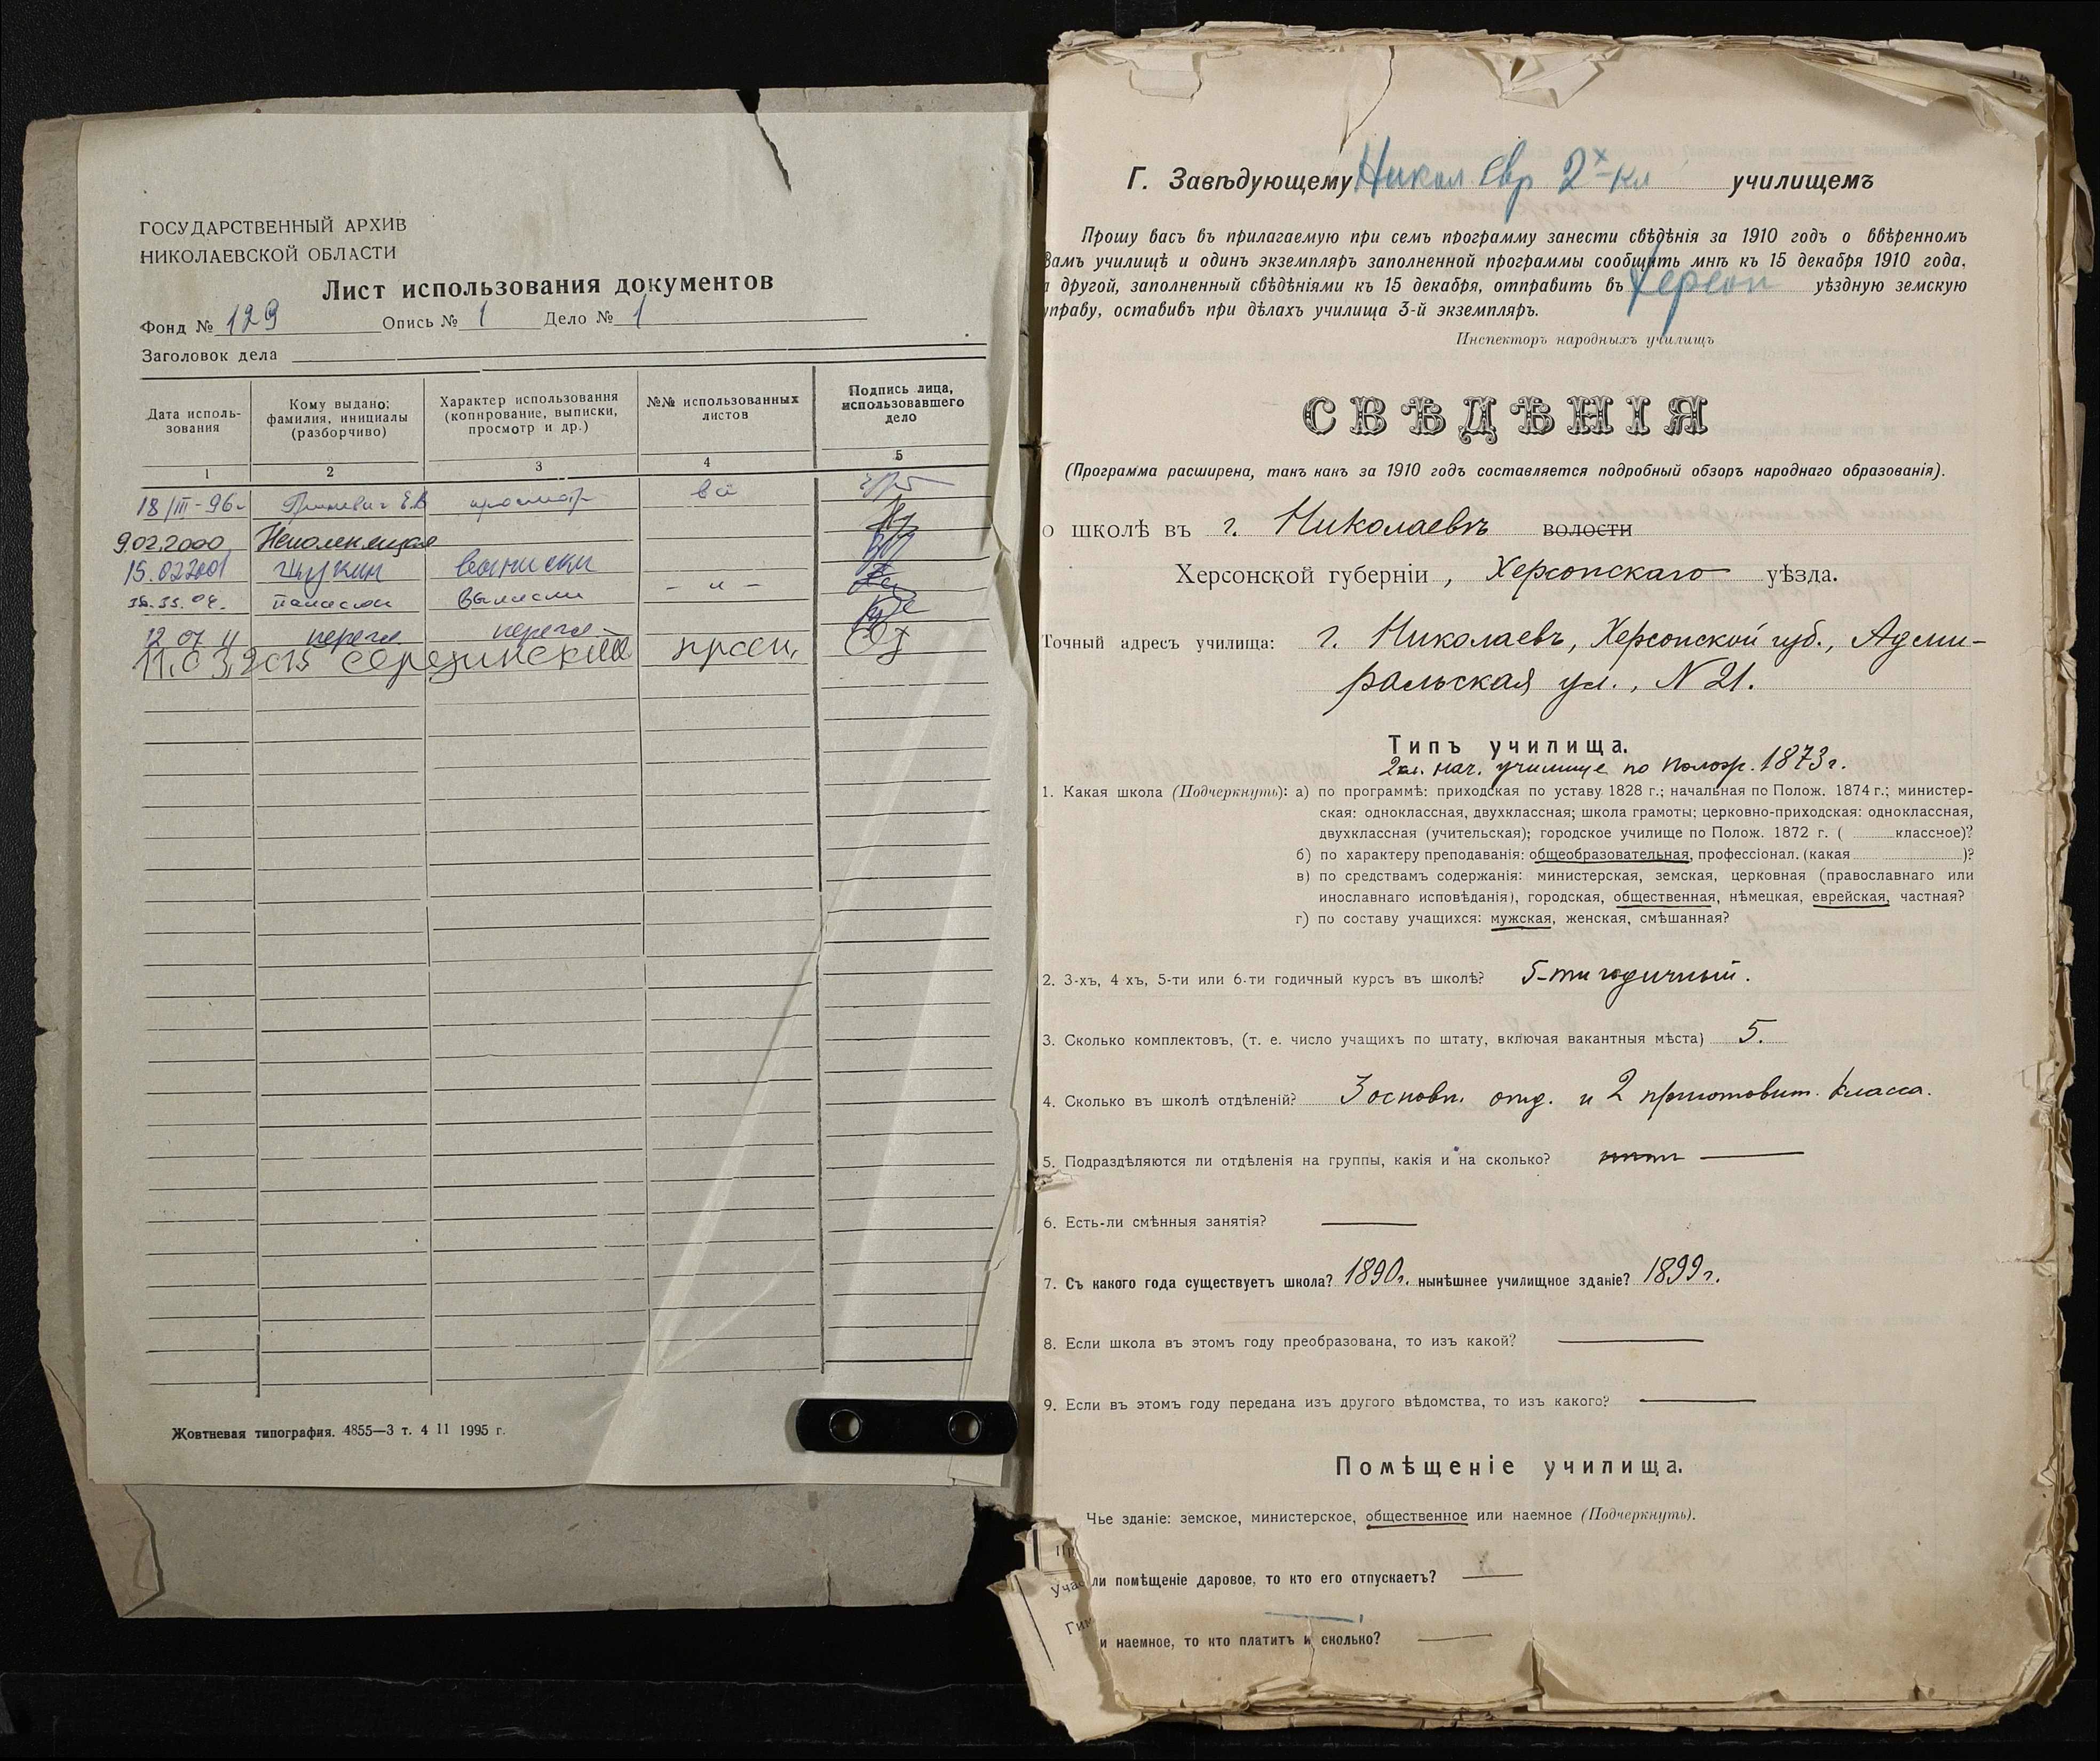 ГОСУДАРСТВЕННЫЙ АРХИВ
НИКОЛАЕВСКОЙ ОБЛАСТИ
Лист использования документов
Фонд № 129 Опись № 1 Дело № 1
Заголовок дела
Дата исполь-
зования
Кому выдано;
фамилия, инициалы
(разборчиво)
Характер использования
(копирование, выписки,
просмотр и др.)
№№ использованных
листов
Подпись лица,
использовавшего
дело
1 2 3 4 5
18/III-96г. Е.В. просмотр все
9.02.2000
15.02.2001 Щукин выписки
выписки - и -
12 07 11
11.03.2015 просм.
Жовтневая типография. 4855—3 т. 4 11 1995 г.
Г. Завѣдующему Никол. Евр 2х-кл училищемъ
Прошу васъ въ прилагаемую при семъ программу занести свѣдѣнія за 1910 годъ о ввѣренномъ
Вамъ училищѣ и одинъ экземпляръ заполненной программы сообщить мнѣ къ 15 декабря 1910 года,
а другой, заполненный свѣдѣніями къ 15 декабря, отправить въ Херсон уѣздную земскую
управу, оставивъ при дѣлахъ училища 3-й экземпляръ.
Инспекторъ народныхъ училищъ
СВѢДѢНІЯ
(Программа расширена, такъ какъ за 1910 годъ составляется подробный обзоръ народнаго образованія).
о школѣ въ г. Николаевѣ волости
Херсонской губерніи, Херсонскаго уѣзда.
Точный адресъ училища: г. Николаевъ, Херсонской губ., Адми-
ральская ул., N 21.
Типъ училища.
2кл. нач. училище по полож. 1873 г.
1. Какая школа (Подчеркнуть): а) по программѣ: приходская по уставу 1828 г.; начальная по Полож. 1874 г.; министер-
ская: одноклассная, двухклассная; школа грамоты; церковно-приходская: одноклассная,
двухклассная (учительская); городское училище по Полож. 1872 г. ( классное)?
б) по характеру преподаванія: общеобразовательная, профессіонал. (какая )?
в) по средствамъ содержанія: министерская, земская, церковная (православнаго или
инославнаго исповѣданія), городская, общественная, нѣмецкая, еврейская, частная?
г) по составу учащихся: мужская, женская, смѣшанная?
2. 3-хъ, 4-хъ, 5-ти или 6-ти годичный курсъ въ школѣ? 5-ти годичный.
3. Сколько комплектовъ, (т. е. число учащихъ по штату, включая вакантныя мѣста) 5.
4. Сколько въ школѣ отдѣленій? 3 основн. отд. и 2 приготовит. класса.
5. Подраздѣляются ли отдѣленія на группы, какія и на сколько? —
6. Есть-ли смѣнныя занятія? —
7. Съ какого года существуетъ школа? 1890 г. нынѣшнее училищное зданіе? 1899 г.
8. Если школа въ этомъ году преобразована, то изъ какой? —
9. Если въ этомъ году передана изъ другого вѣдомства, то изъ какого? —
Помѣщеніе училища.
Чье зданіе: земское, министерское, общественное или наемное (Подчеркнуть).
ли помѣщеніе даровое, то кто его отпускаетъ? —
и наемное, то кто платитъ и сколько? —